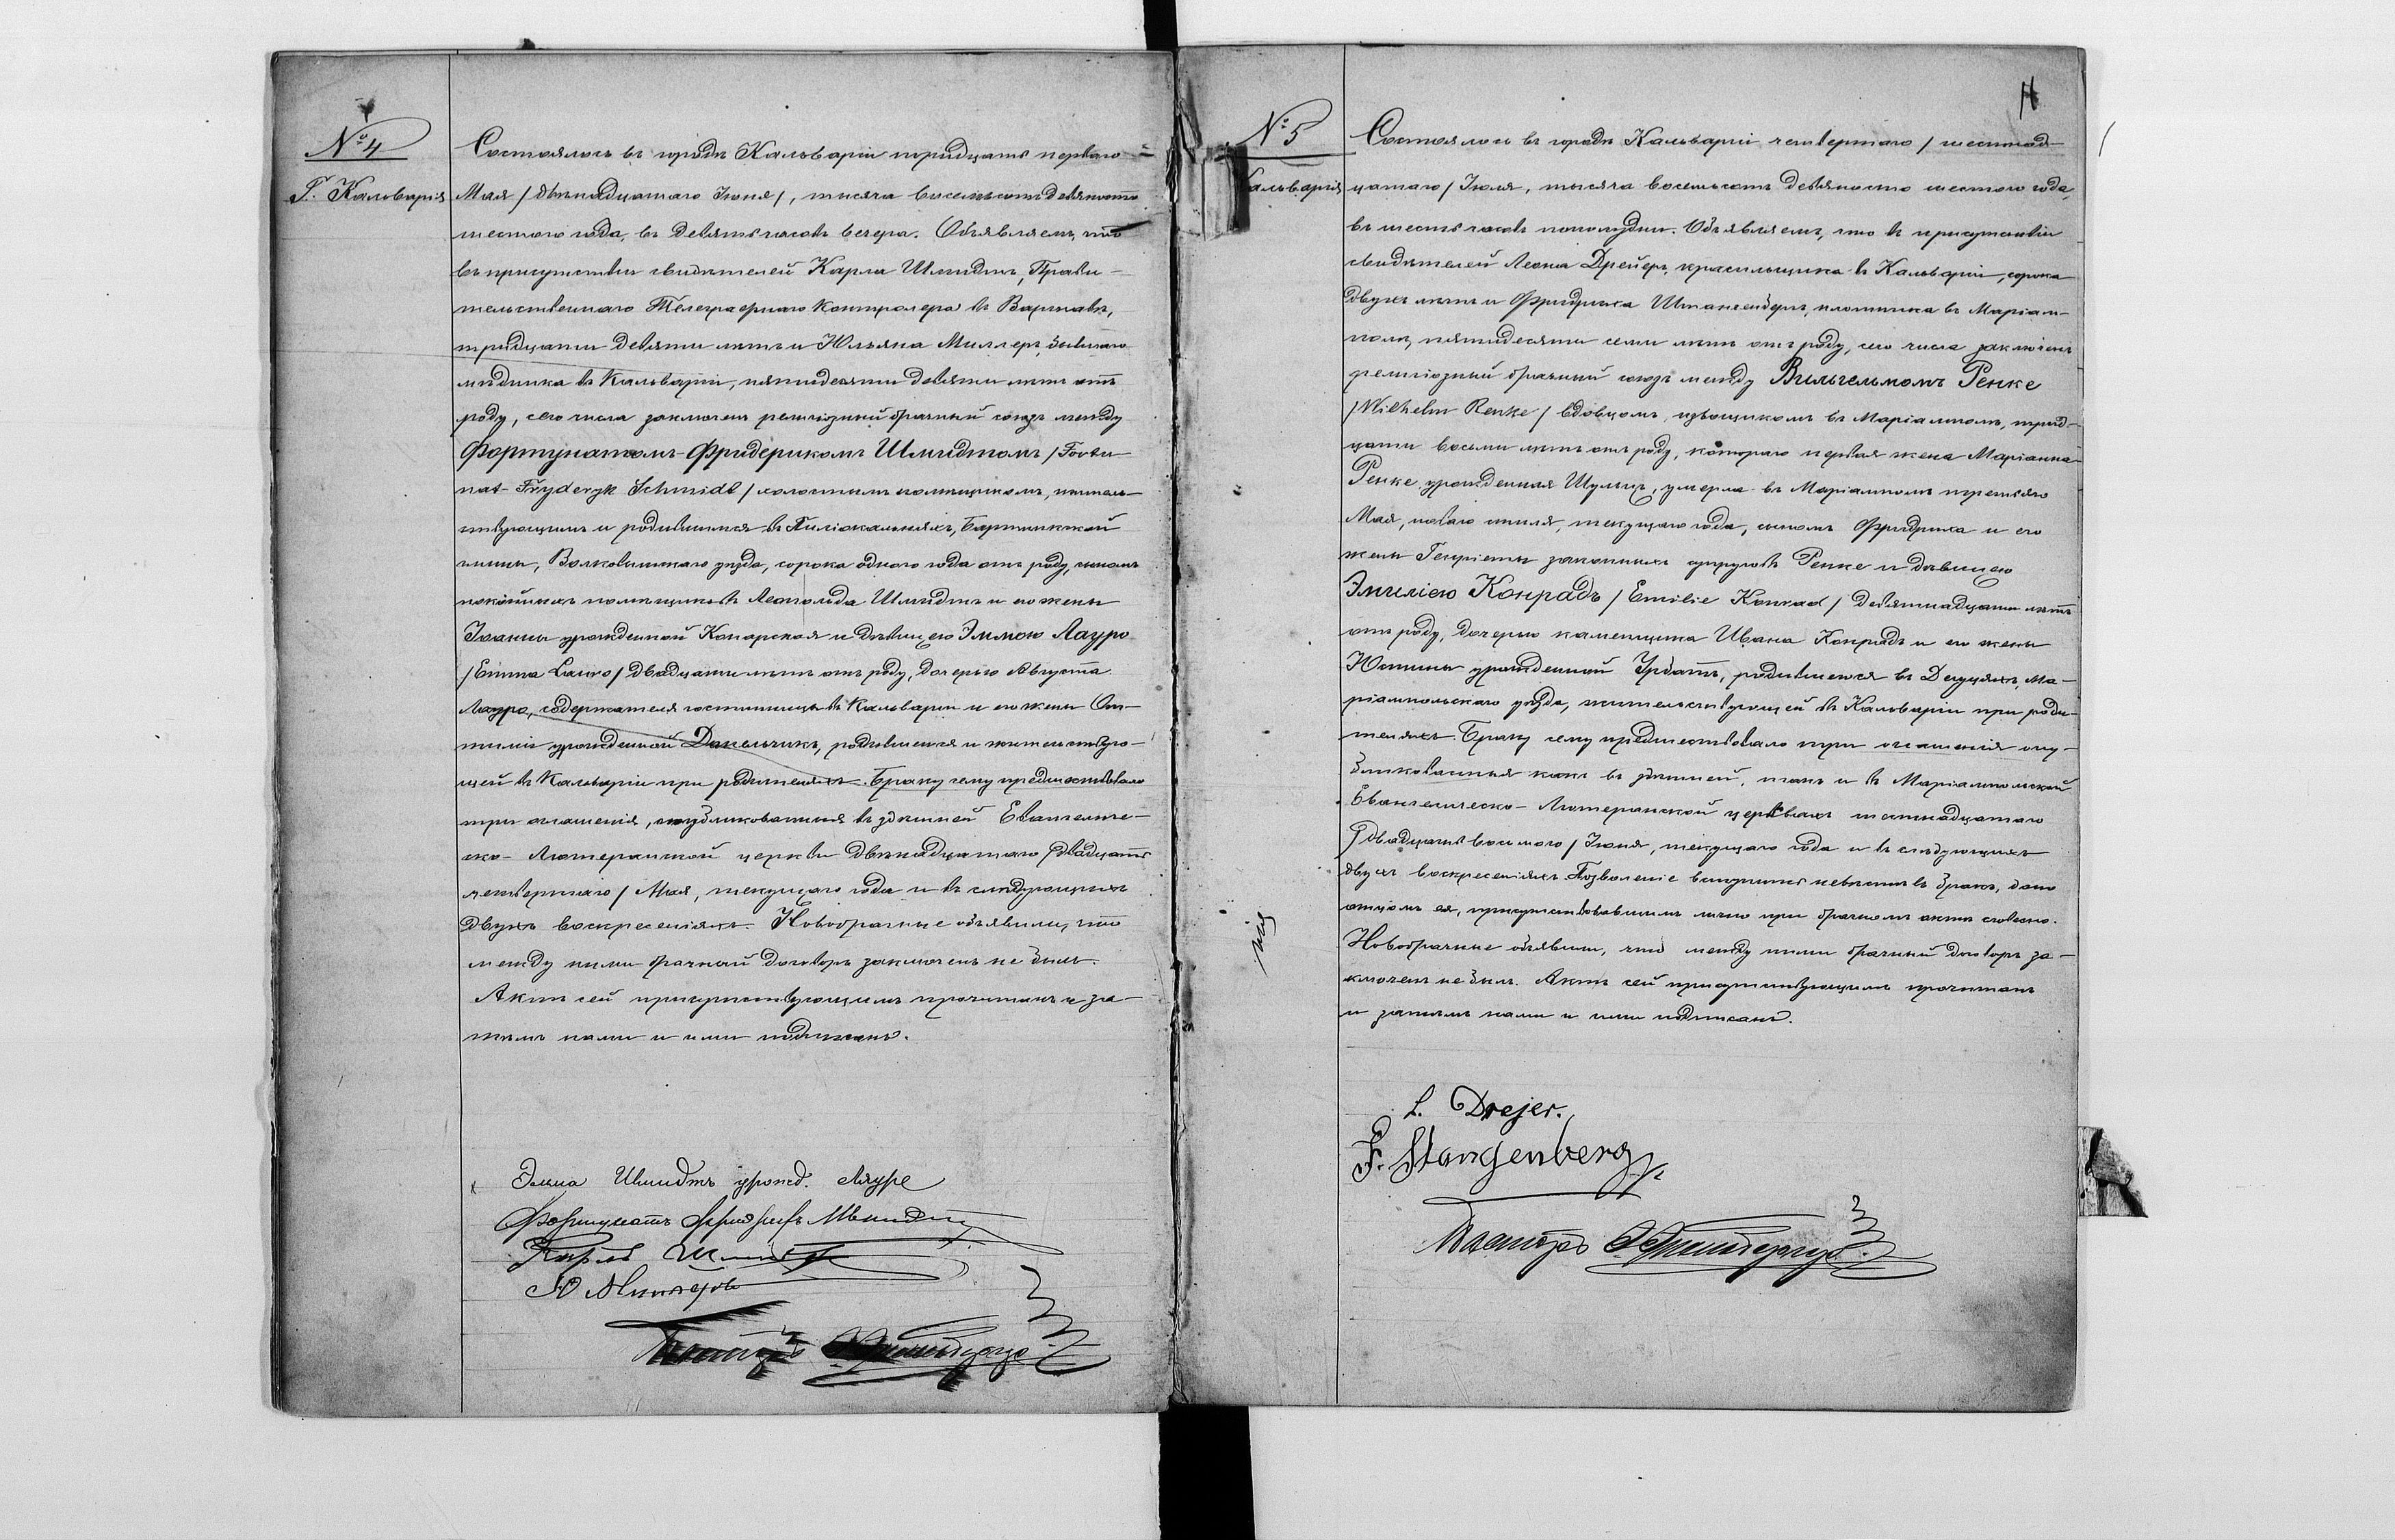 № 4
Г. Кальварія
Состоялось въ городѣ Кальваріи тридцать перваго
Мая /двѣнадцатаго Іюня/, тысяча восемьсотъ девяносто
шестого года, въ девять часовъ вечера. Объявляемъ, что
въ присутствіи свидѣтелей Карла Шмидтъ, Прави-
тельственнаго Телеграфнаго Контролера въ Варшавѣ,
тридцати девяти лѣтъ и Юльяна Миллеръ, бывшаго
мѣдника въ Кальваріи, пятидесяти девяти лѣтъ отъ
роду, сего числа заключенъ религіозный брачный союзъ между
Фортунатомъ-Фридерикомъ Шмидтомъ /Fortu-
nat-Fryderyk Schmidt/ холостымъ помѣщикомъ, житель-
ствующимъ и родившимся въ Пиліокальняхъ, Бартникской
гмины, Волковышскаго уѣзда, сорока одного года отъ роду, сыномъ
покойныхъ помѣщиковъ Леопольда Шмидтъ и его жены
Іоанны урожденной Конарская и дѣвицею Эммою Лауро
/Emma Lauro/ двадцати лѣтъ отъ роду, дочерью Августа
Лауро, содержателя гостинницы въ Кальваріи и его жены От-
тиліи урожденной Данельчикъ, родившеюся и жительствую-
щей въ Кальваріи при родителяхъ. Браку сему предшествовало
три оглашенія, опубликованныя въ здѣшней Евангеличе-
ско-Лютеранской церкви двѣнадцатаго /двадцать
четвертаго/ Мая, текущаго года и въ слѣдующихъ
двухъ воскресеніяхъ. Новобрачные объявили, что
между ними брачный договоръ заключенъ не былъ.
Актъ сей присутствующимъ прочитанъ и за-
тѣмъ нами и ими подписанъ.
Эмма Шмидтъ урожд. Лауре
Фортунатъ Фридрихъ Шмидтъ
Карлъ Шмидтъ
Ю Миллеръ
Пасторъ
№ 5
Кальварія
Состоялось въ городѣ Кальваріи четвертаго /шестнад-
цатаго/ Іюля, тысяча восемьсотъ девяносто шестого года,
въ шесть часовъ пополудни. Объявляемъ, что въ присутствіи
свидѣтелей Леона Дрейеръ, красильщика въ Кальваріи, сорока
двухъ лѣтъ и Фридриха Штангенберъ, плотника въ Маріам-
полѣ, пятидесяти семи лѣтъ отъ роду, сего числа заключенъ
религіозный брачный союзъ между Вильгельмомъ Ренке
/Wilhelm Renke/ вдовцомъ, извощикомъ въ Маріамполѣ, трид-
цати восьми лѣтъ отъ роду, котораго первая жена Маріанна
Ренке, урожденная Шульцъ, умерла въ Маріамполѣ третьяго
Мая, новаго стиля, текущаго года, сыномъ Фридриха и его
жены Генріеты законныхъ супруговъ Ренке и дѣвицею
Эмиліею Конрадъ /Emilie Konrad/ девятнадцати лѣтъ
отъ роду, дочерью каменщика Ивана Конрадъ и его жены
Юстины урожденной Урбатъ, родившеюся въ Дегуцяхъ, Ма-
ріампольскаго уѣзда, жительствующей въ Кальваріи при роди-
теляхъ. Браку сему предшествовало три оглашенія опу-
бликованныя какъ въ здѣшней, такъ и въ Маріампольской
Евангелическо-Лютеранской церквахъ шестнадцатаго
/двадцать восьмого/ Іюня, текущаго года и въ слѣдующихъ
двухъ воскресеніяхъ. Позволеніе вступить невѣстѣ въ бракъ, дано
отцомъ ея, присутствовавшимъ лично при брачномъ актѣ словесно.
Новобрачные объявили, что между ними брачный договоръ за-
ключенъ не былъ. Актъ сей присутствующимъ прочитанъ
и затѣмъ нами и ими подписанъ.
L. Drejer.
F. Stangenberg
Пасторъ